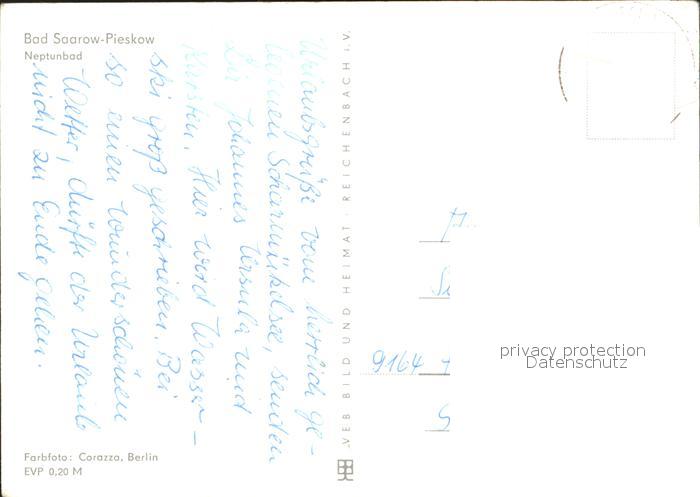 Bad Saarow-Pieskow
Neptunbad
Urlaubsgrüße vom herrlich ge-
legenen Scharmützelsee, senden
Dir Johannes Ursula und
Karsten. Hier wird Wasser-
ski groß geschrieben. Bei
so einen wunderschönen
Wetter, dürfte der Urlaub
nicht zu Ende gehen.
VEB BILD UND HEIMAT · REICHENBACH i. V.
9164
privacy protection
Datenschutz
Farbfoto: Corazza, Berlin
EVP 0,20 M